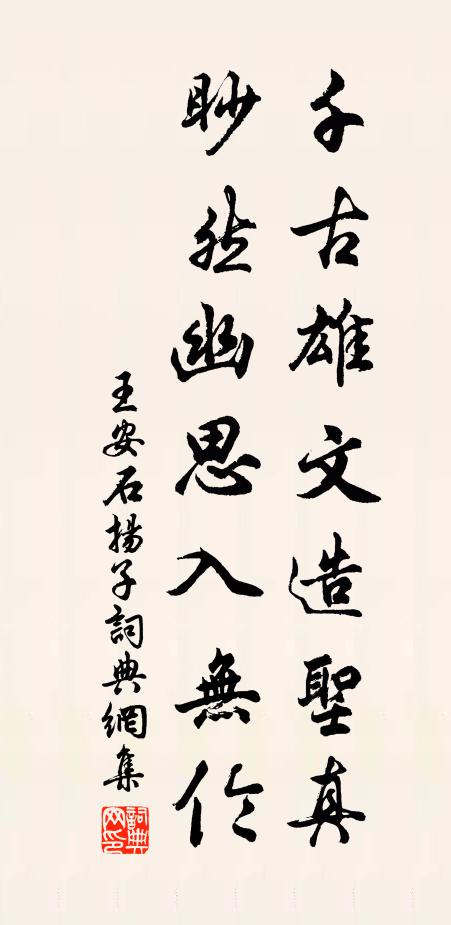 千古雄文造聖真
眇然幽思入無倫
王安石揚子詞典網集
詞典
网印